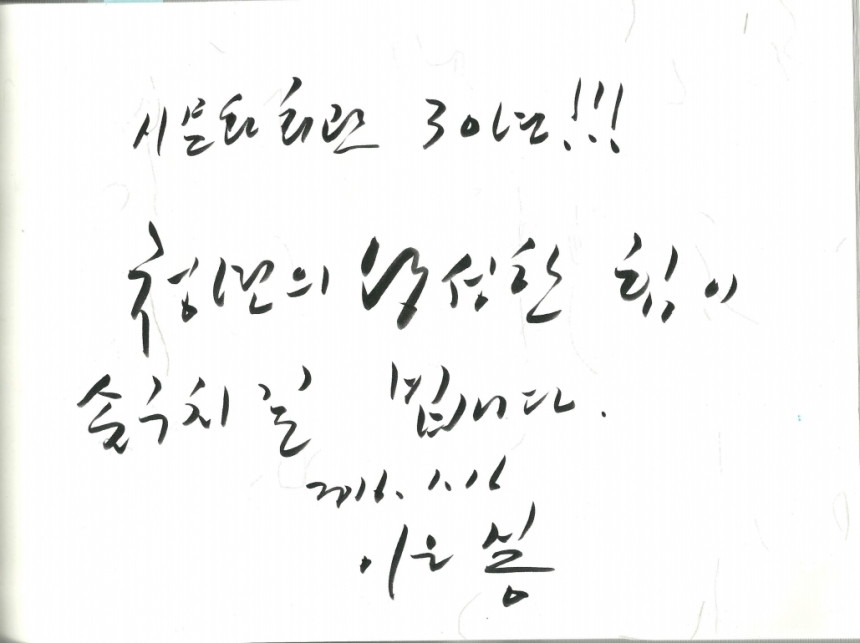 시문화회관 30년!!!
청년의 왕성한 힘이
솟구치길 빕니다.
2016. 1. 16
이은